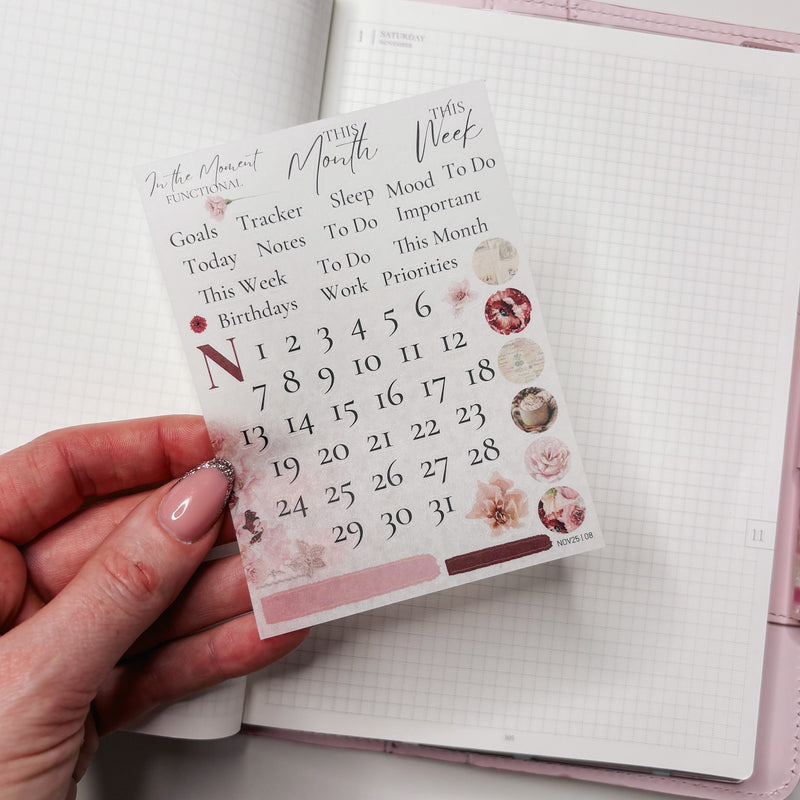 1 | SATURDAY
NOVEMBER
In the Moment
FUNCTIONAL
THIS
Month
THIS
Week
Goals Tracker Sleep Mood To Do
Today Notes To Do Important
This Week To Do This Month
Birthdays Work Priorities
N 1 2 3 4 5 6
7 8 9 10 11 12
13 14 15 16 17 18
19 20 21 22 23
24 25 26 27 28
29 30 31
NOV25 | 08
11